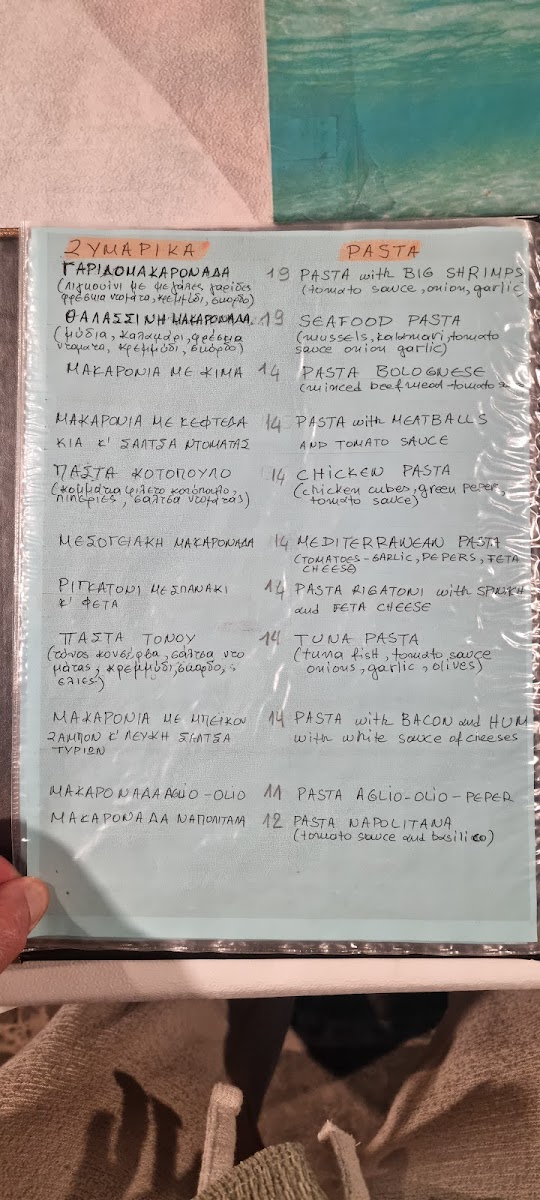 ΖΥΜΑΡΙΚΑ PASTA
ΓΑΡΙΔΟΜΑΚΑΡΟΝΑΔΑ 19 PASTA with BIG SHRIMPS
(λιγκουίνι με μεγάλες γαρίδες (tomato sauce, onion, garlic)
φρέσκια ντομάτα, κρεμμύδι, σκόρδο)
ΘΑΛΑΣΣΙΝΗ ΜΑΚΑΡΟΝΑΔΑ 19 SEAFOOD PASTA
(μύδια, καλαμάρι, φρέσκια (mussels, kalamari, tomato
ντομάτα, κρεμμύδι, σκόρδο) sauce onion garlic)
ΜΑΚΑΡΟΝΙΑ ΜΕ ΚΙΜΑ 14 PASTA BOLOGNESE
(minced beef meat-tomato
ΜΑΚΑΡΟΝΙΑ ΜΕ ΚΕΦΤΕΔΑ 14 PASTA with MEATBALLS
ΚΙΑ Κ' ΣΑΛΤΣΑ ΝΤΟΜΑΤΑΣ AND TOMATO SAUCE
ΠΑΣΤΑ ΚΟΤΟΠΟΥΛΟ 14 CHICKEN PASTA
(κομμάτια φιλέτο κοτόπουλο, (chicken cubes, green peper,
πιπεριές, σάλτσα ντομάτας) tomato sauce)
ΜΕΣΟΓΕΙΑΚΗ ΜΑΚΑΡΟΝΑΔΑ 14 MEDITERRANEAN PASTA
(TOMATOES-GARLIC, PEPERS, FETA
CHEESE)
ΡΙΓΚΑΤΟΝΙ ΜΕ ΣΠΑΝΑΚΙ 14 PASTA RIGATONI with
Κ' ΦΕΤΑ and FETA CHEESE
ΠΑΣΤΑ ΤΟΝΟΥ 14 TUNA PASTA
(τόνος κονσέρβα, σάλτσα ντο (tuna fish, tomato sauce
μάτας, κρεμμύδι, σκόρδο, onions, garlic, olives)
ελιές)
ΜΑΚΑΡΟΝΙΑ ΜΕ ΜΠΕΙΚΟΝ 14 PASTA with BACON and HUM
ΖΑΜΠΟΝ Κ' ΛΕΥΚΗ ΣΑΛΤΣΑ with white sauce of cheeses
ΤΥΡΙΩΝ
ΜΑΚΑΡΟΝΑΔΑ AGLIO-OLIO 11 PASTA AGLIO-OLIO-PEPER
ΜΑΚΑΡΟΝΑΔΑ ΝΑΠΟΛΙΤΑΝΑ 12 PASTA NAPOLITANA
(tomato sauce and basilico)